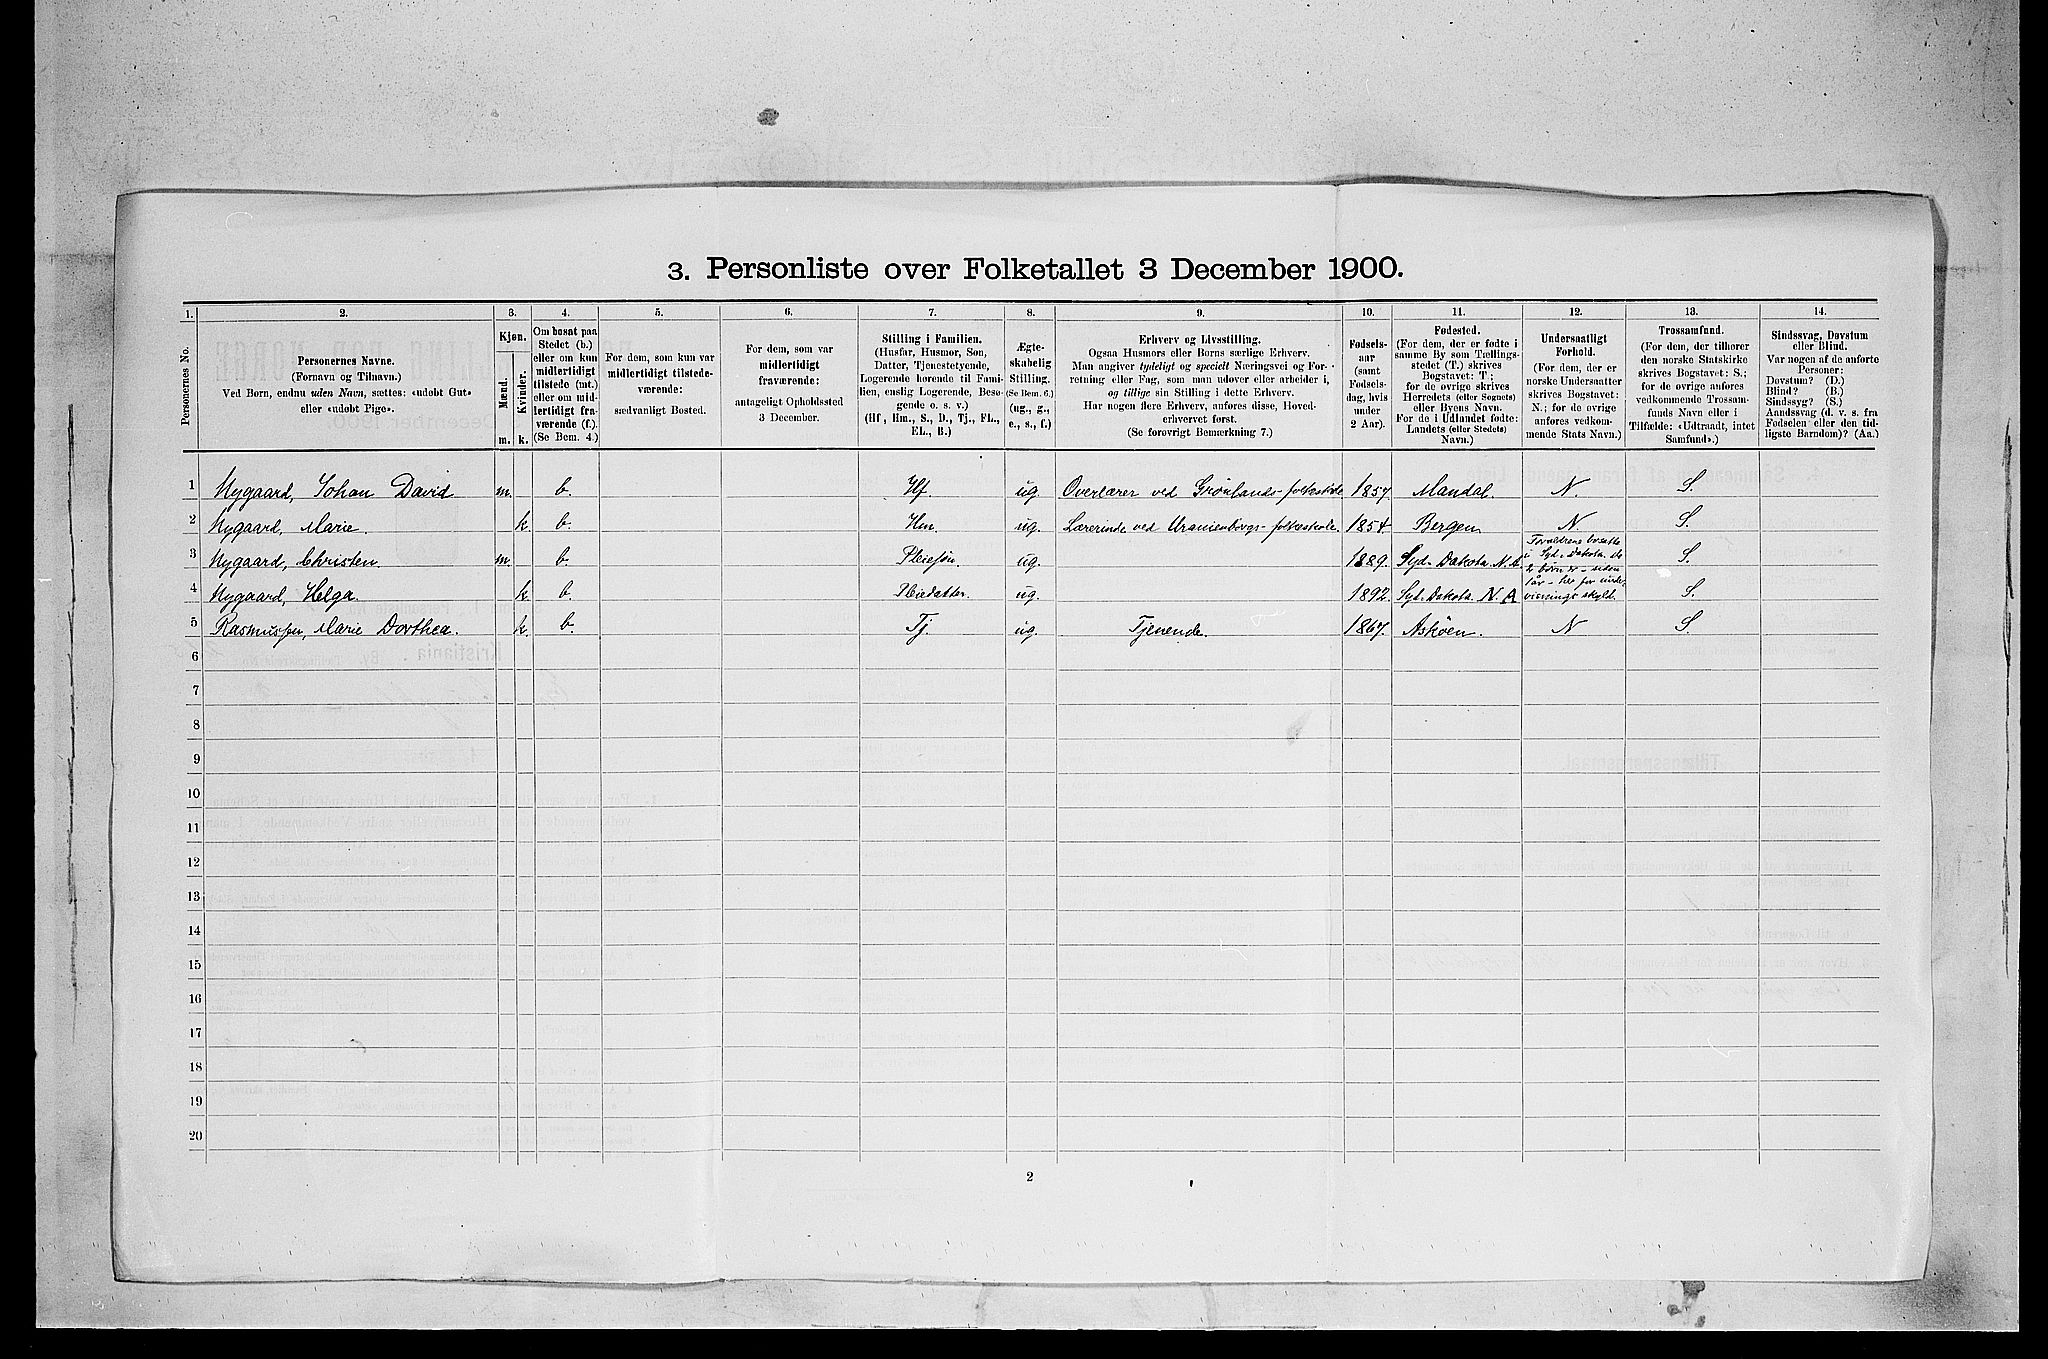 3. Personliste over Folketallet 3 December 1900.
1. 2. 3. 4. 5. 6. 7. 8. 9. 10. 11. 12. 13. 14.
Personernes No.
Personernes Navne.
(Fornavn og Tilnavn.)
Ved Børn, endnu uden Navn, sættes: «udøbt Gut»
eller «udøbt Pige».
Kjøn.
Mænd.
Kvinder.
m. k.
Om bosat paa
Stedet (b.)
eller om kun
midlertidigt
tilstede (mt.)
eller om mid-
lertidigt fra-
værende (f.).
(Se Bem. 4.)
For dem, som kun var
midlertidigt tilstede-
værende:
sædvanligt Bosted.
For dem, som var
midlertidigt
fraværende:
antageligt Opholdssted
3 December.
Stilling i Familien.
(Husfar, Husmor, Søn,
Datter, Tjenestetyende,
Logerende hørende til Fami-
lien, enslig Logerende, Besø-
gende o. s. v.)
(Hf, Hm., S., D., Tj., FL.,
EL., B.)
Ægte-
skabelig
Stilling.
(Se Bem. 6.)
(ug., g.,
e., s., f.)
Erhverv og Livsstilling.
Ogsaa Husmors eller Børns særlige Erhverv.
Man angiver tydeligt og specielt Næringsvei og For-
retning eller Fag, som man udøver eller arbeider i,
og tillige sin Stilling i dette Erhverv.
Har nogen flere Erhverv, anføres disse, Hoved-
erhvervet først.
(Se forøvrigt Bemærkning 7.)
Fødsels-
aar
(samt
Fødsels-
dag, hvis
under
2 Aar).
Fødested.
(For dem, der er fødte i
samme By som Tællings-
stedet (T.) skrives
Bogstavet: T;
for de øvrige skrives
Herredets (eller Sognets)
eller Byens Navn.
For de i Udlandet fødte:
Landets (eller Stedets)
Navn.)
Undersaatligt
Forhold.
(For dem, der er
norske Undersaatter
skrives Bogstavet:
N.; for de øvrige
anføres vedkom-
mende Stats Navn.)
Trossamfund.
(For dem, der tilhører
den norske Statskirke
skrives Bogstavet: S.;
for de øvrige anføres
vedkommende Trossam-
funds Navn eller i
Tilfælde: «Udtraadt, intet
Samfund».)
Sindssvag, Døvstum
eller Blind.
Var nogen af de anførte
Personer:
Døvstum? (D.)
Blind? (B.)
Sindssyg? (S.)
Aandssvag (d. v. s. fra
Fødselen eller den tid-
ligste Barndom)? (Aa.)
1 Nygaard, Johan David m. b. Hf ug. Overlærer ved Grønlands-folkeskole 1857. Mandal. N. S.
2 Nygaard, Marie. k. b. Hm ug. Lærerinde ved Uranienborgs-folkeskole. 1854. Bergen N. S.
3 Nygaard, Christen. m. b. Pleiesøn. ug. 1889. Syd-Dakota. N. A. Forældrene bosatte i Syd-Dakota. de S.
4 Nygaard, Helga. k. b. Pleiedatter. ug. 1892. Syd. Dakota. N. A 2 børn er - uden får - her for under- visnings skyld. S.
5 Rasmussen, Marie Dorthea. k. b. Tj. ug. Tjenende. 1867. Askøen. N S.
6
7
8
9
10
11
12
13
14
15
16
17
18
19
20
2